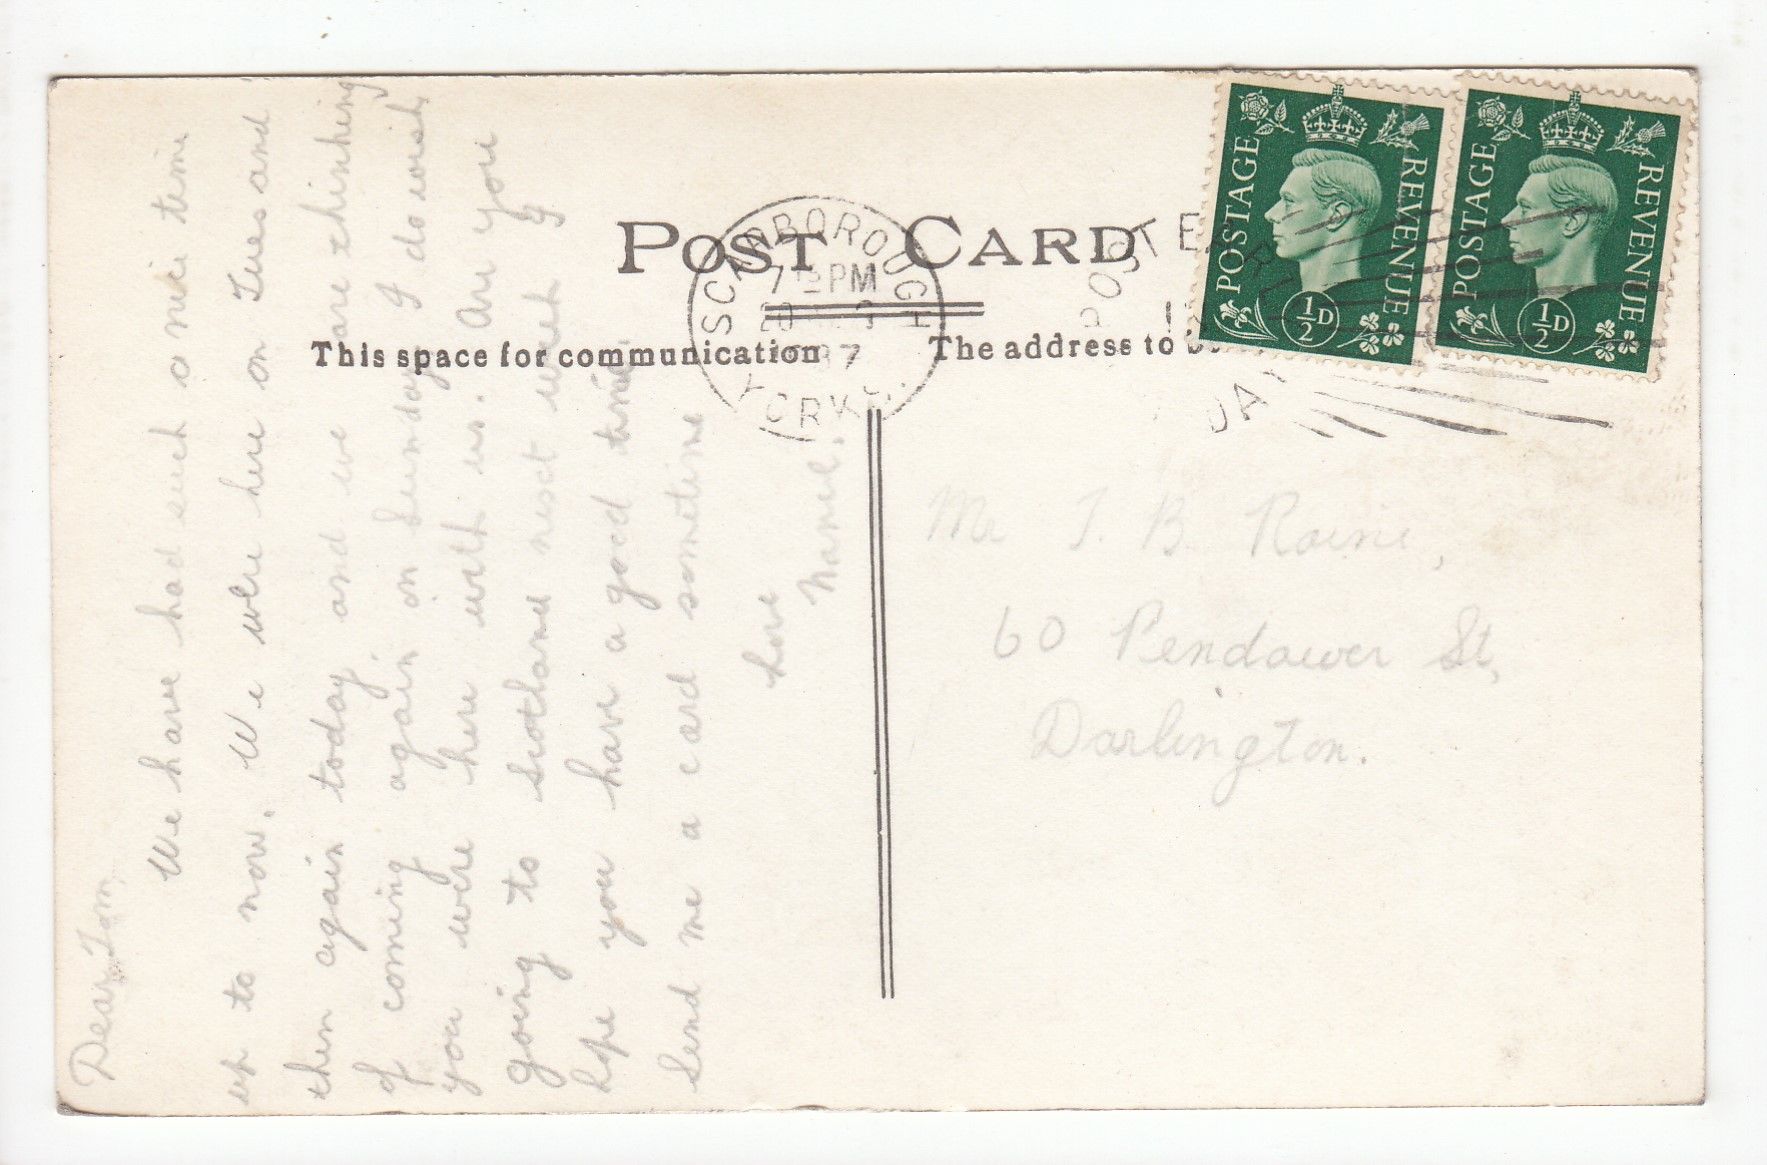 POST CARD
This space for communication
The address to b
SCARBOROUGH
7 15 PM
20
37
YORKS.
POST EARLY
DAY
POSTAGE REVENUE
½D
POSTAGE REVENUE
½D
Dear Tom,
We have had such a nice time
up to now. We were here on Tues and
then again today and we are thinking
of coming again on Sunday. I do wish
you were here with us. Are you
going to Scotland next week I
hope you have a good time.
Send me a card sometime
Love
Mr T. B. Raine,
60 Pendower St,
Darlington.